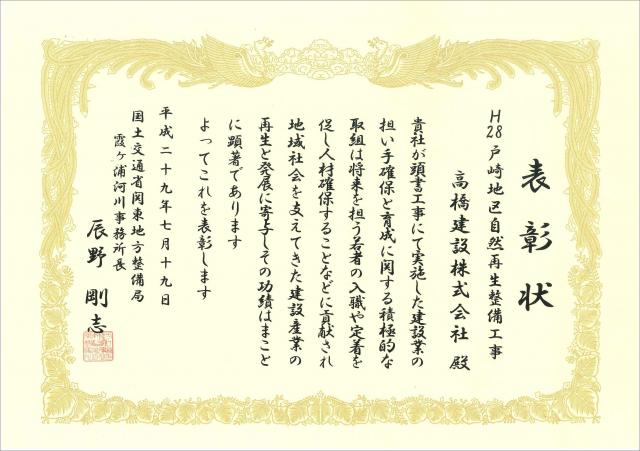 表彰状
H28戸崎地区自然再生整備工事
高橋建設株式会社 殿
貴社が頭書工事にて実施した建設業の
担い手確保と育成に関する積極的な
取組は将来を担う若者の入職や定着を
促し人材確保することなどに貢献され
地域社会を支えてきた建設産業の
再生と発展に寄与しその功績はまこと
に顕著であります
よってこれを表彰します
平成二十九年七月十九日
国土交通省関東地方整備局
霞ヶ浦河川事務所長
辰野剛志